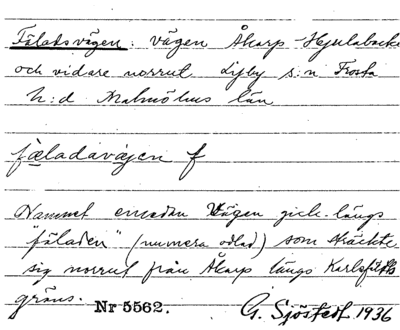 Fäladsvägen: vägen Åkarp-Hjulabacke
och vidare norrut Lyby s:n Frosta
h:d Malmöhus län
fæladavæjen f
Namnet emedan vägen gick längs
"fäladen" (numera odlad) som sträckte
sig norrut från Åkarp längs Karlsfälts
gräns. Nr 5562. G. Sjöstedt 1936